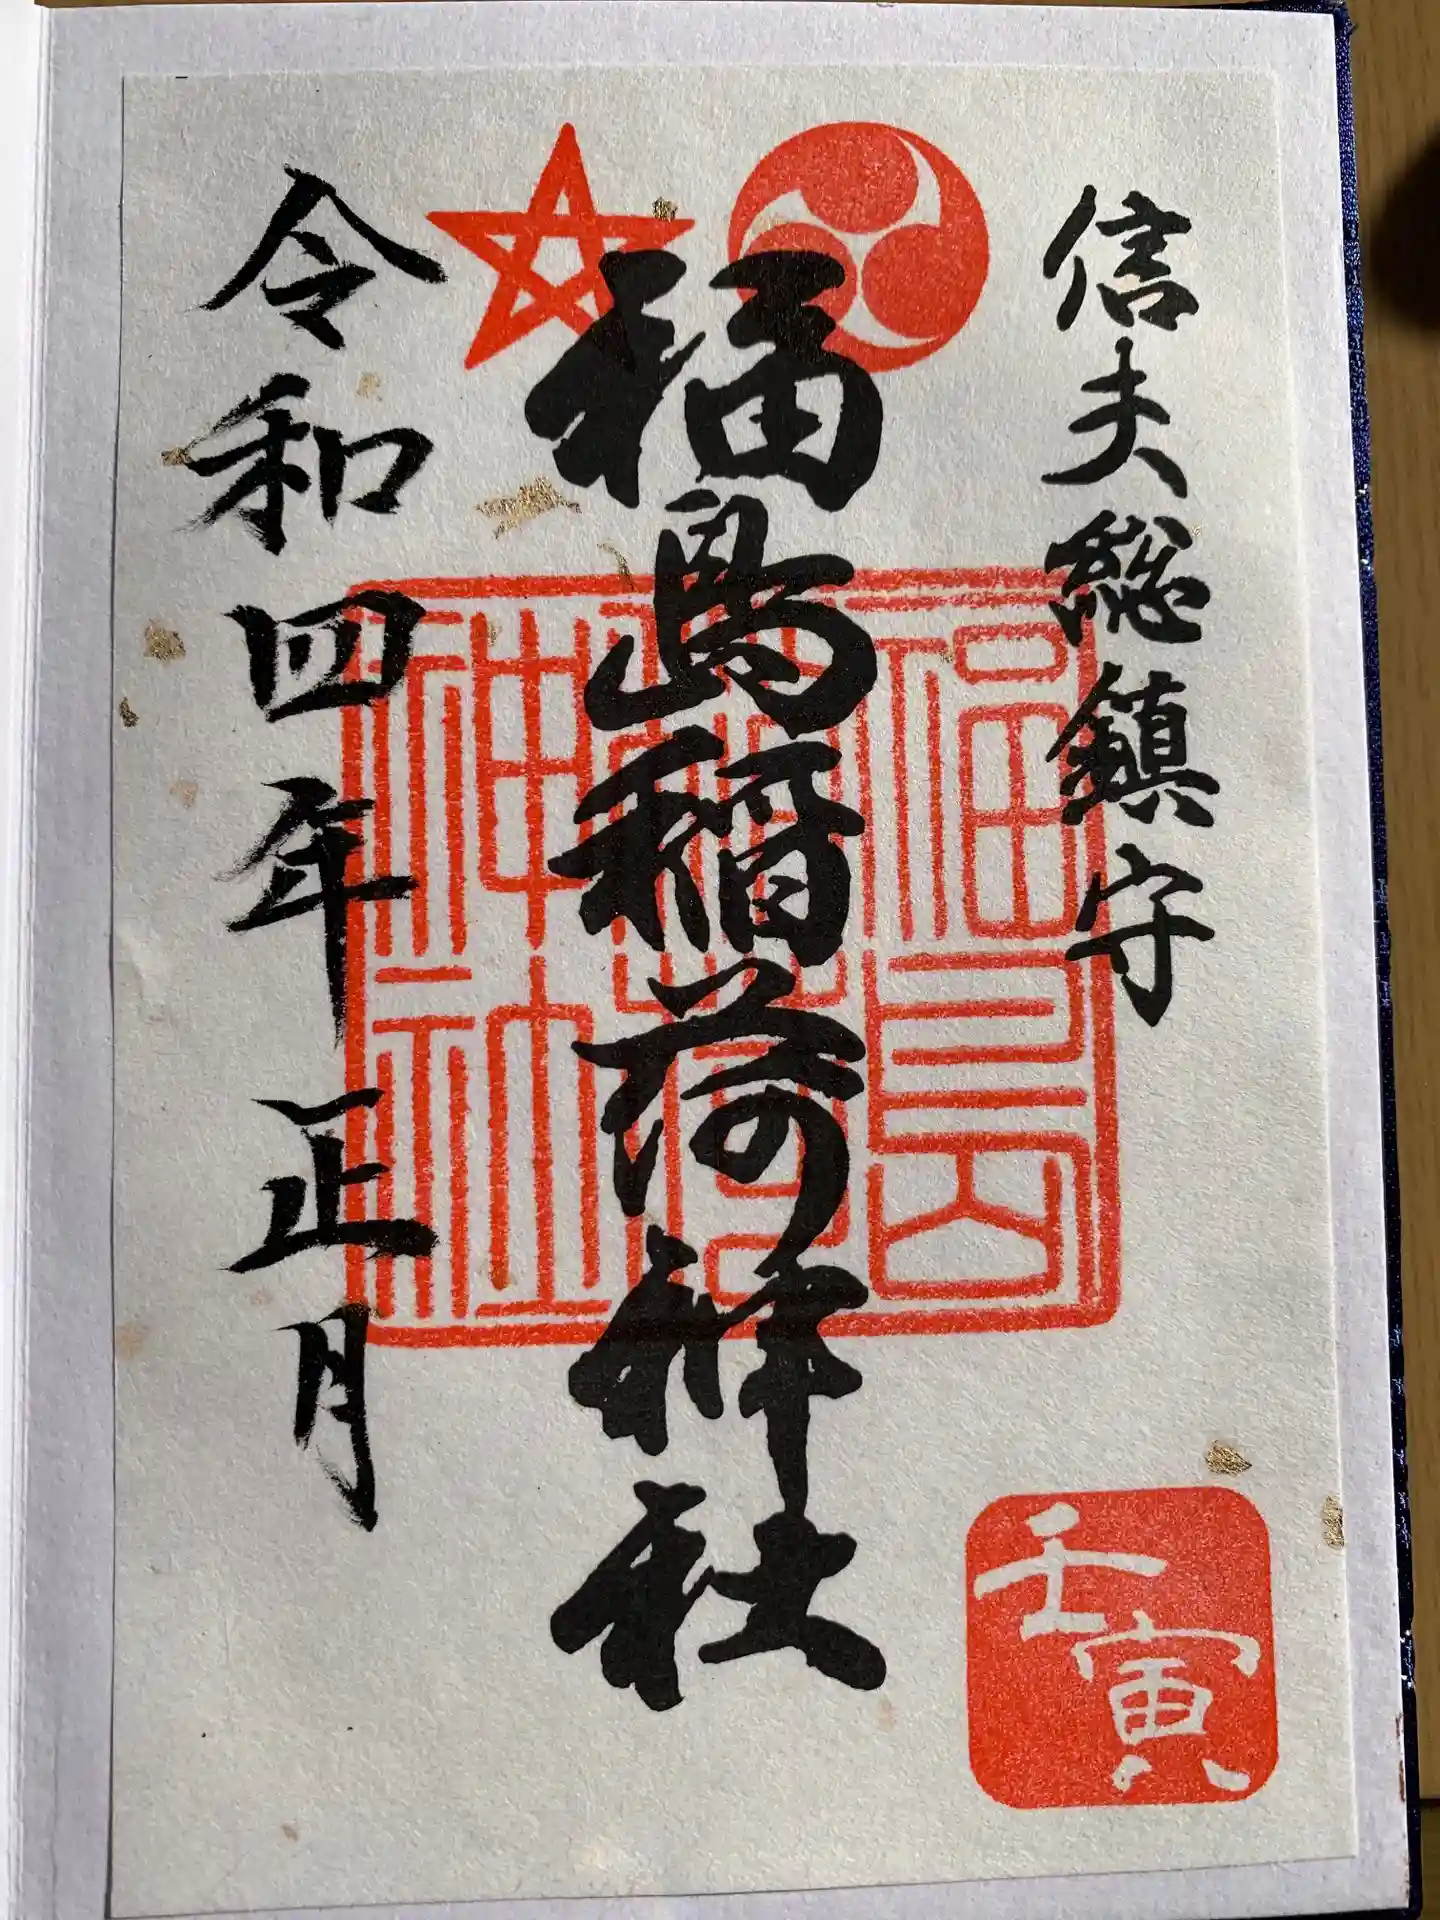 信夫総鎮守
福島稲荷神社
令和四年正月
福島
稲荷
神社
壬寅